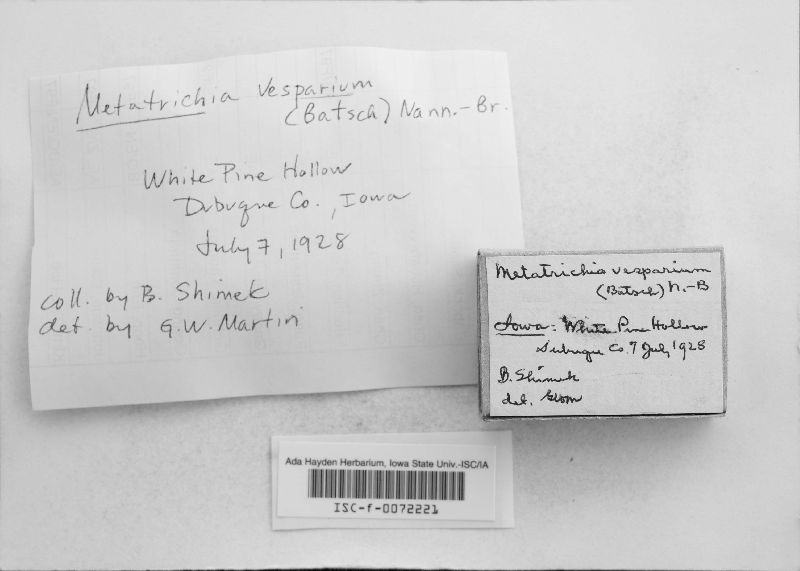 Metatrichia vesparium
(Batsch) Nann.-Br.
White Pine Hollow
Dubuque Co., Iowa
July 7, 1928
coll. by B. Shimek
det. by G.W. Martin
Metatrichia vesparium
(Batsch) N.-B
Iowa: White Pine Hollow
Dubuque Co. 7 July 1928
B. Shimek
det. GWM
Ada Hayden Herbarium, Iowa State Univ.-ISC/IA
ISC-f-0072221